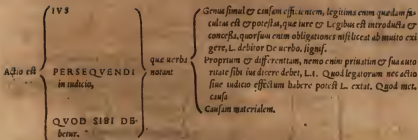 Actio est
IVS
PERSEQVENDI
in iudicio,
QVOD SIBI DE-
betur.
quæ uerba
notant
Genus simul & causam efficientem, legitima enim quædam fa-
cultas est & potestas, quæ iure & Legibus est introducta &
concessa, quorsum enim obligationes nisi liceat ab inuito exi
gere, L. debitor De uerbo. signif.
Proprium & differentiam, nemo enim priuatim & sua auto
ritate sibi ius dicere debet, L.1. Quod legatorum nec actio
sine iudicio effectum habere potest L. extat. Quod met.
causa
Causam materialem.